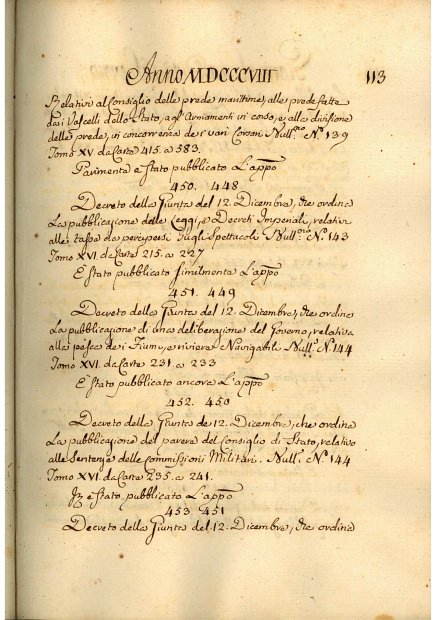 Anno MDCCCVIII 113
Relativi al Consiglio delle prede marittime, alle prede fatte
dai Vascelli dello Stato, agl'Armamenti in corso, e alla divisione
delle prede, in concorrenza de varj Corsari Null.no N.o 139
Tomo XV da Carte 415. a 583.
Parimente è Stato pubblicato L'app.o
450. 448
Decreto della Giunta del 12. Dicembre, che ordina
La pubblicazione delle Leggi, e Decreti Imperiali, relativi
alle tasse da percepersi sugli Spettacoli Null.no N.o 143
Tomo XVI da Carte 215. a 227
È Stato pubblicato similmente L'app.o
451. 449
Decreto della Giunta del 12. Dicembre, che ordina
La pubblicazione di una deliberazione del Governo, relativa
alle pesca dei Fiumi, e riviere Navigabili Null.o N.o 144
Tomo XVI. da Carte 231. a 233
È Stato pubblicato ancora L'app.o
452. 450
Decreto della Giunta de 12. Dicembre, che ordina
La pubblicazione del parere del Consiglio di Stato, relativo
alle Sentenze delle Commissioni Militari. Null.o N.o 144
Tomo XVI. da Carte 235. a 241.
è Stato pubblicato L'app.o
453. 451
Decreto della Giunta del 12. Dicembre, che ordina